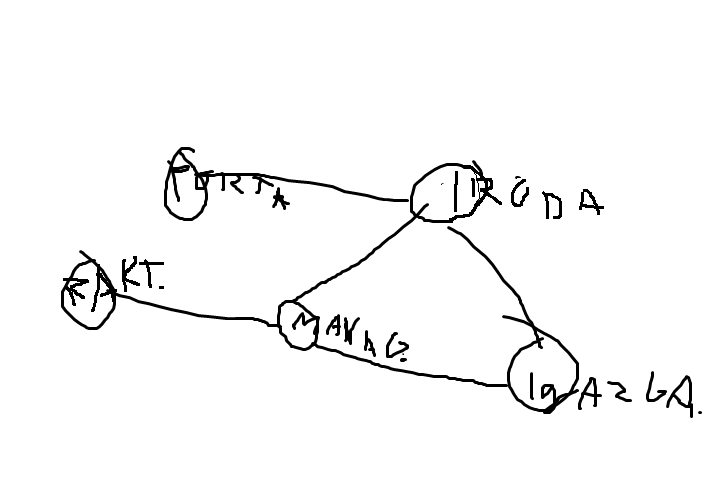 PORTA
IRODA
RAKT.
MANAG.
IgAZGA.